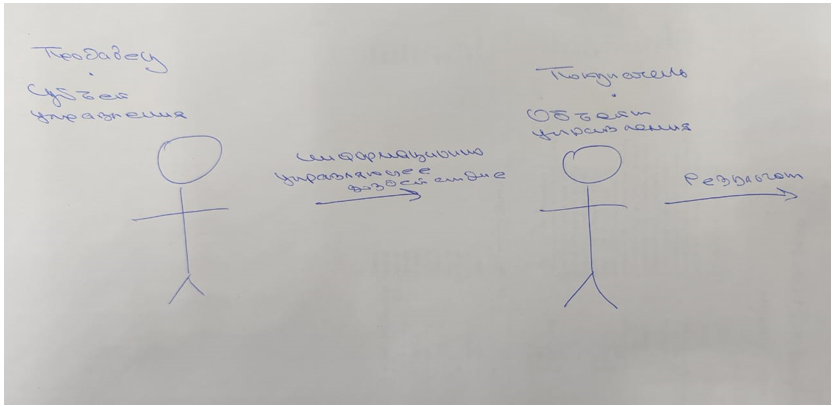 Продавец
Субъект
управления
Информационно
управляющее
воздействие
Покупатель
Объект
управления
Результат